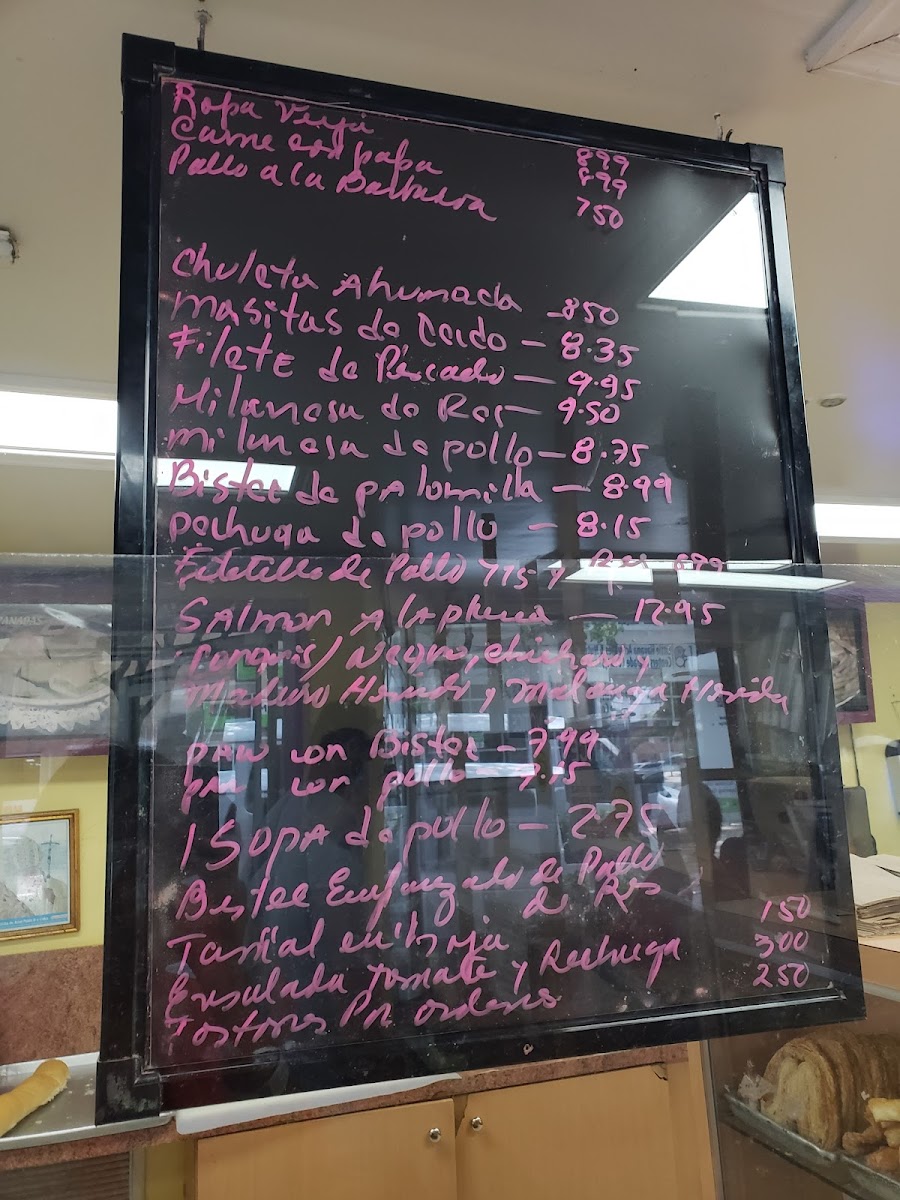 Ropa Vieja
Carne con papa 899
Pollo a la Barbacoa 899
750
Chuleta Ahumada - 850
Masitas de Cerdo - 8.35
Filete de Pescado - 9.95
Milanesa de Res - 9.50
Milanesa de pollo - 8.75
Bistec de palomilla - 8.99
pechuga de pollo - 8.15
Filetillo de Pollo 775 y Res 899
Salmon A la plancha - 12.95
Congris / Negro, chicharo y
Maduro Hervido y Malanga Hervida
pan con Bistec - 7.99
pan con pollo - 7.15
1 SOPA de pollo - 2.75
Bistec Empanizado de Pollo
de Res
Tamal en hoja 150
Ensalada Tomate y Lechuga 300
Tostones Por ordenes 250